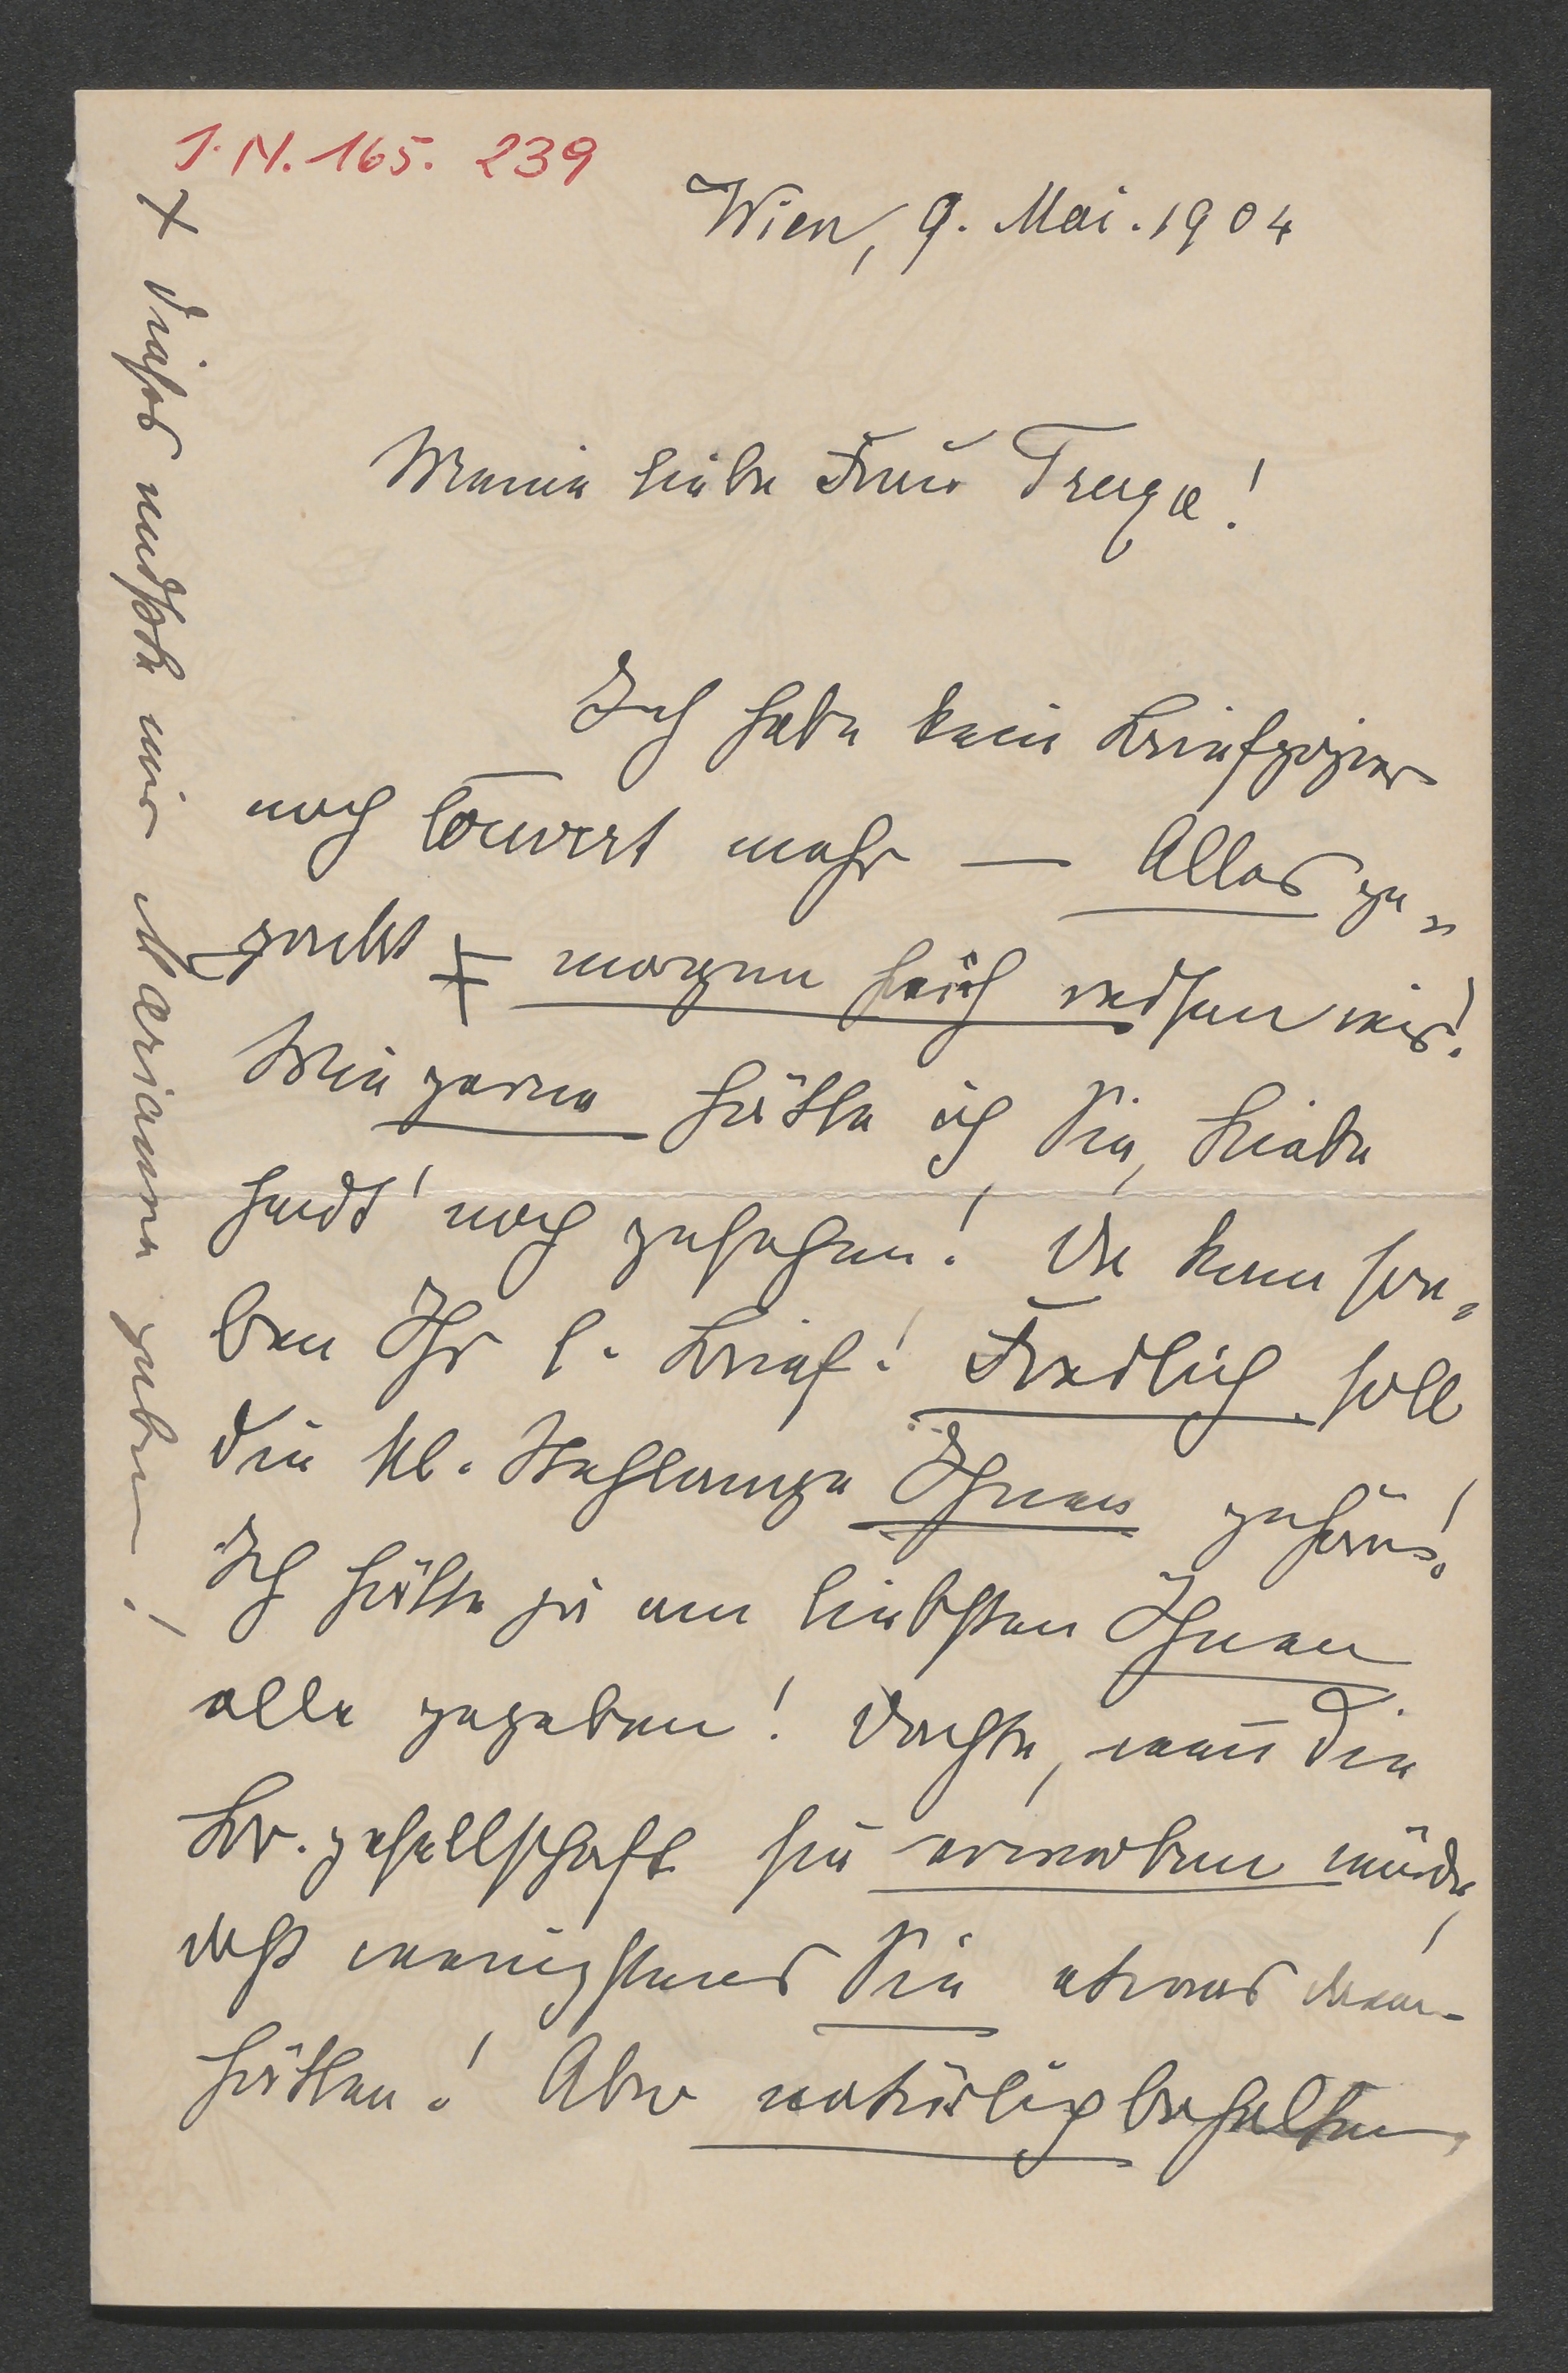 J. N. 165. 239
Wien, 9. Mai. 1904
Meine liebe Frau Trega!
Ich habe kein Briefpapier
noch Couvert mehr — Alles ge„
packt ╪ morgen früh reisen wir!
Wie gerne hätte ich Sie, Liebe
heut' noch gesehen! Da kam so„
ben Ihr l. Brief! Freilich soll
die kl. Ihnen gehören!
Ich hätte sie am liebsten Ihnen
alle gegeben! Dachte, wenn die
Br. gesellschaft sie erwerben würde,
daß wenigstens Sie etwas davon
hätten! Aber natürlich behalten
+ dieses mußte mir Marianne geben!